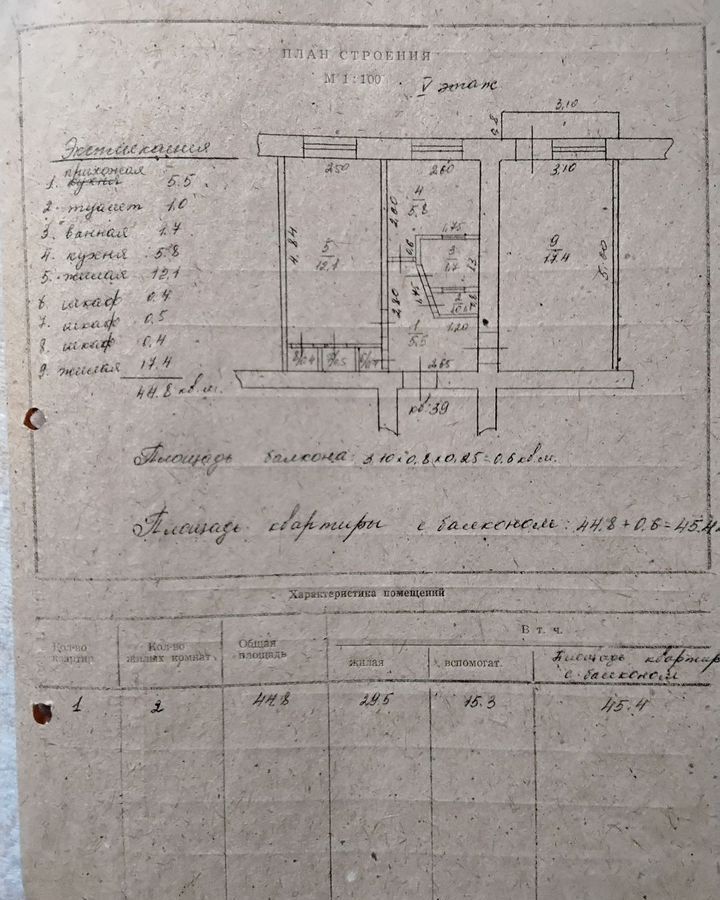 ПЛАН СТРОЕНИЯ
М 1:100
V этаж
Экспликация
прихожая
1. кухня 5.5
2. туалет 1.0
3. ванная 1.7
4. кухня 5.8
5. жилая 12.1
6 шкаф 0.4
7. шкаф 0.5
8. шкаф 0.4
9. жилая 17.4
44.8 кв.м.
3,10
0,8
2.50
2.60
3,10
4.84
5
12,1
4
5,8
2,00
1,75
0,6
3
1,7
1,45
2,80
2
1,0
1,20
1
5,5
9
17.4
5.60
2,65
кв. 39
Площадь балкона: 3.10×0,8×0,25=0,6 кв.м.
Площадь квартиры с балконом: 44.8+0.6=45.4
Характеристика помещений
Кол-во квартир
Кол-во жилых комнат
Общая площадь
В т. ч.
жилая
вспомогат.
Площадь квартир с балконом
1 2 44.8 29.5 15.3 45.4